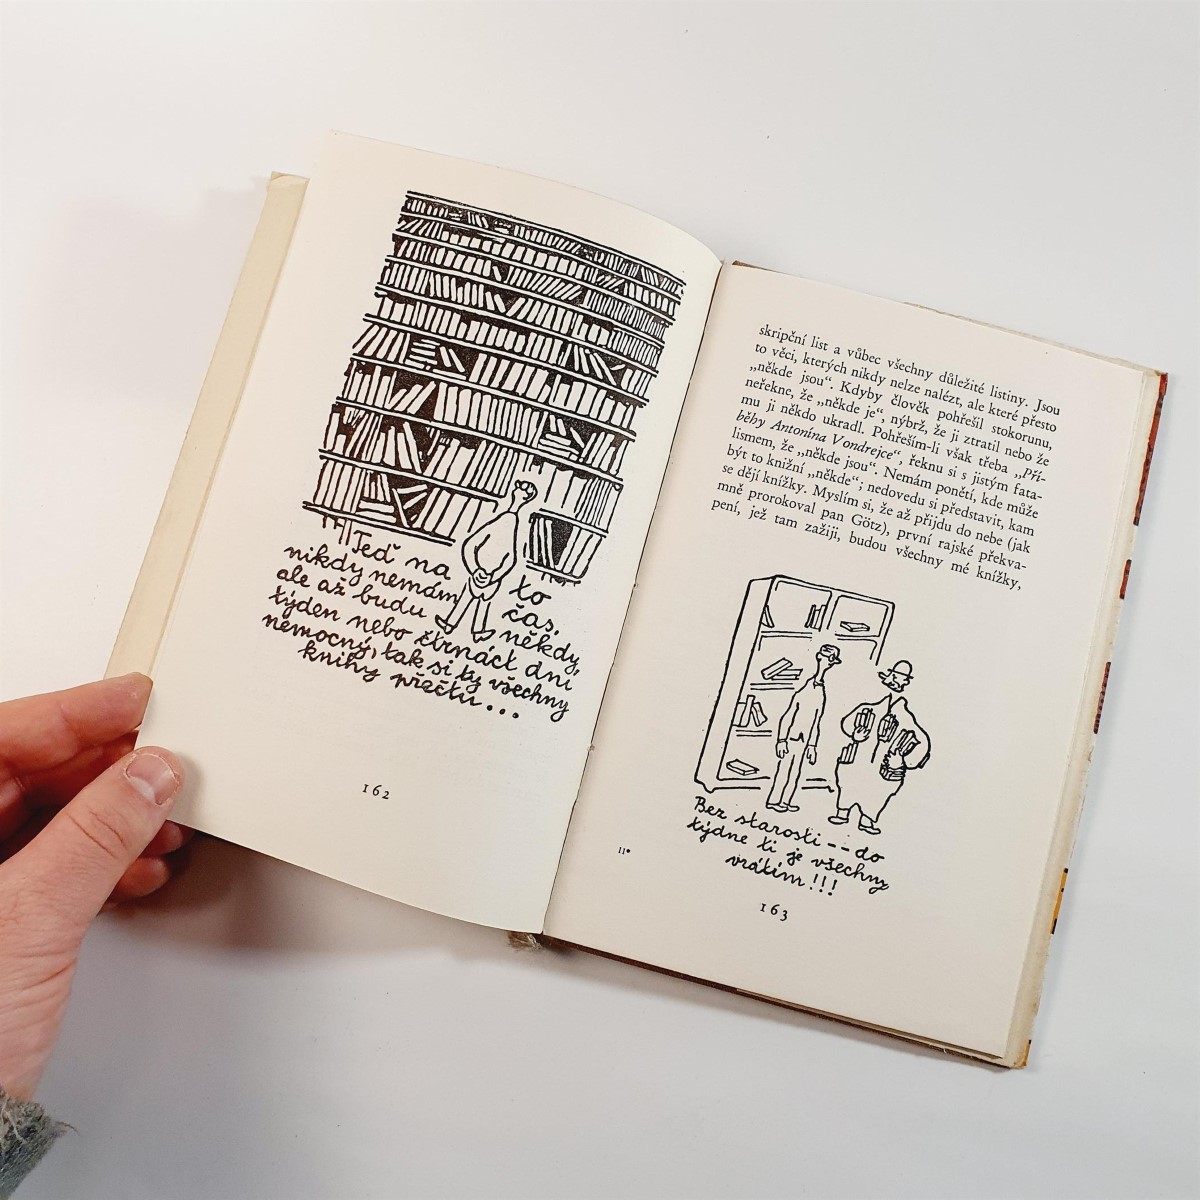 Teď na to
nikdy nemám čas.
ale až budu někdy,
týden nebo čtrnáct dní
nemocný, tak si ty všechny
knihy přečtu...
162
skripční list a vůbec všechny důležité listiny. Jsou
to věci, kterých nikdy nelze nalézt, ale které přesto
„někde jsou“. Kdyby člověk pohřešil stokorunu,
neřekne, že „někde je“, nýbrž, že ji ztratil nebo že
mu ji někdo ukradl. Pohřeším-li však třeba „Pří-
běhy Antonína Vondrejce“, řeknu si s jistým fata-
lismem, že „někde jsou“. Nemám ponětí, kde může
být to knižní „někde“; nedovedu si představit, kam
se dějí knížky. Myslím si, že až přijdu do nebe (jak
mně prorokoval pan Götz), první rajské překva-
pení, jež tam zažiji, budou všechny mé knížky,
Bez starosti -- do
týdne ti je všechny
vrátím!!!
11*
163